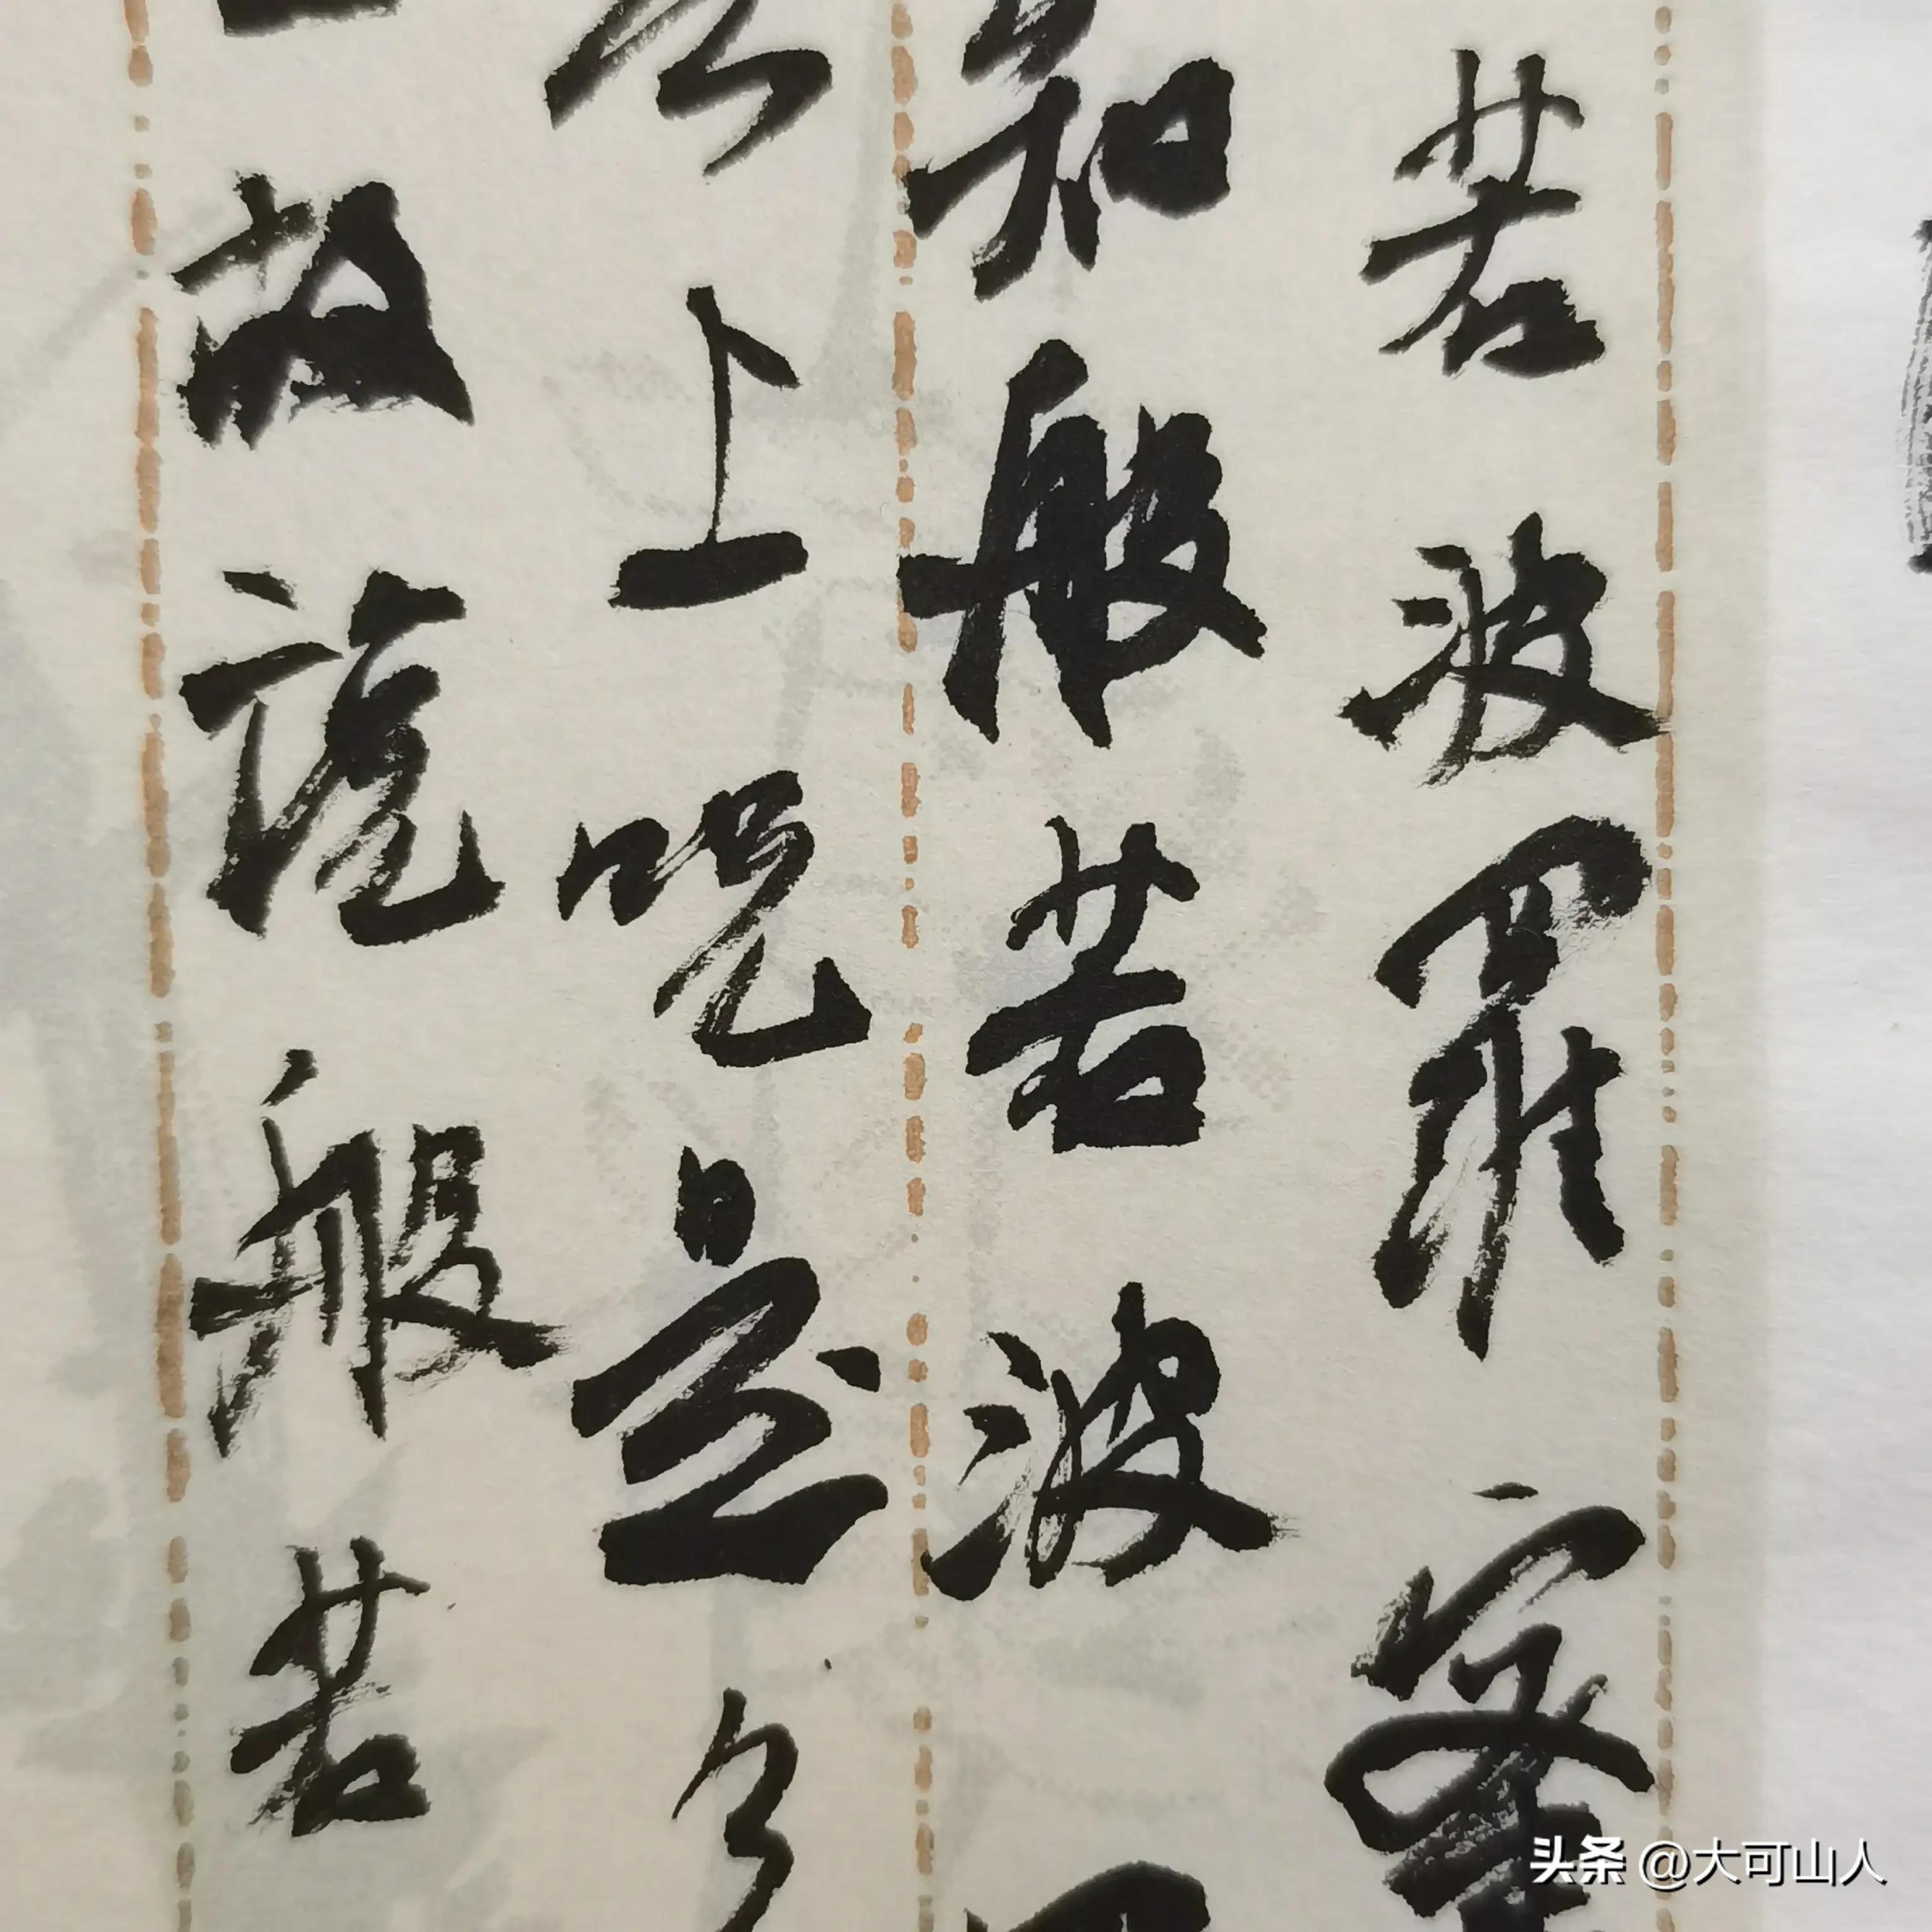 若波羅蜜
知般若波
上咒是
故説般若
头条 @大可山人